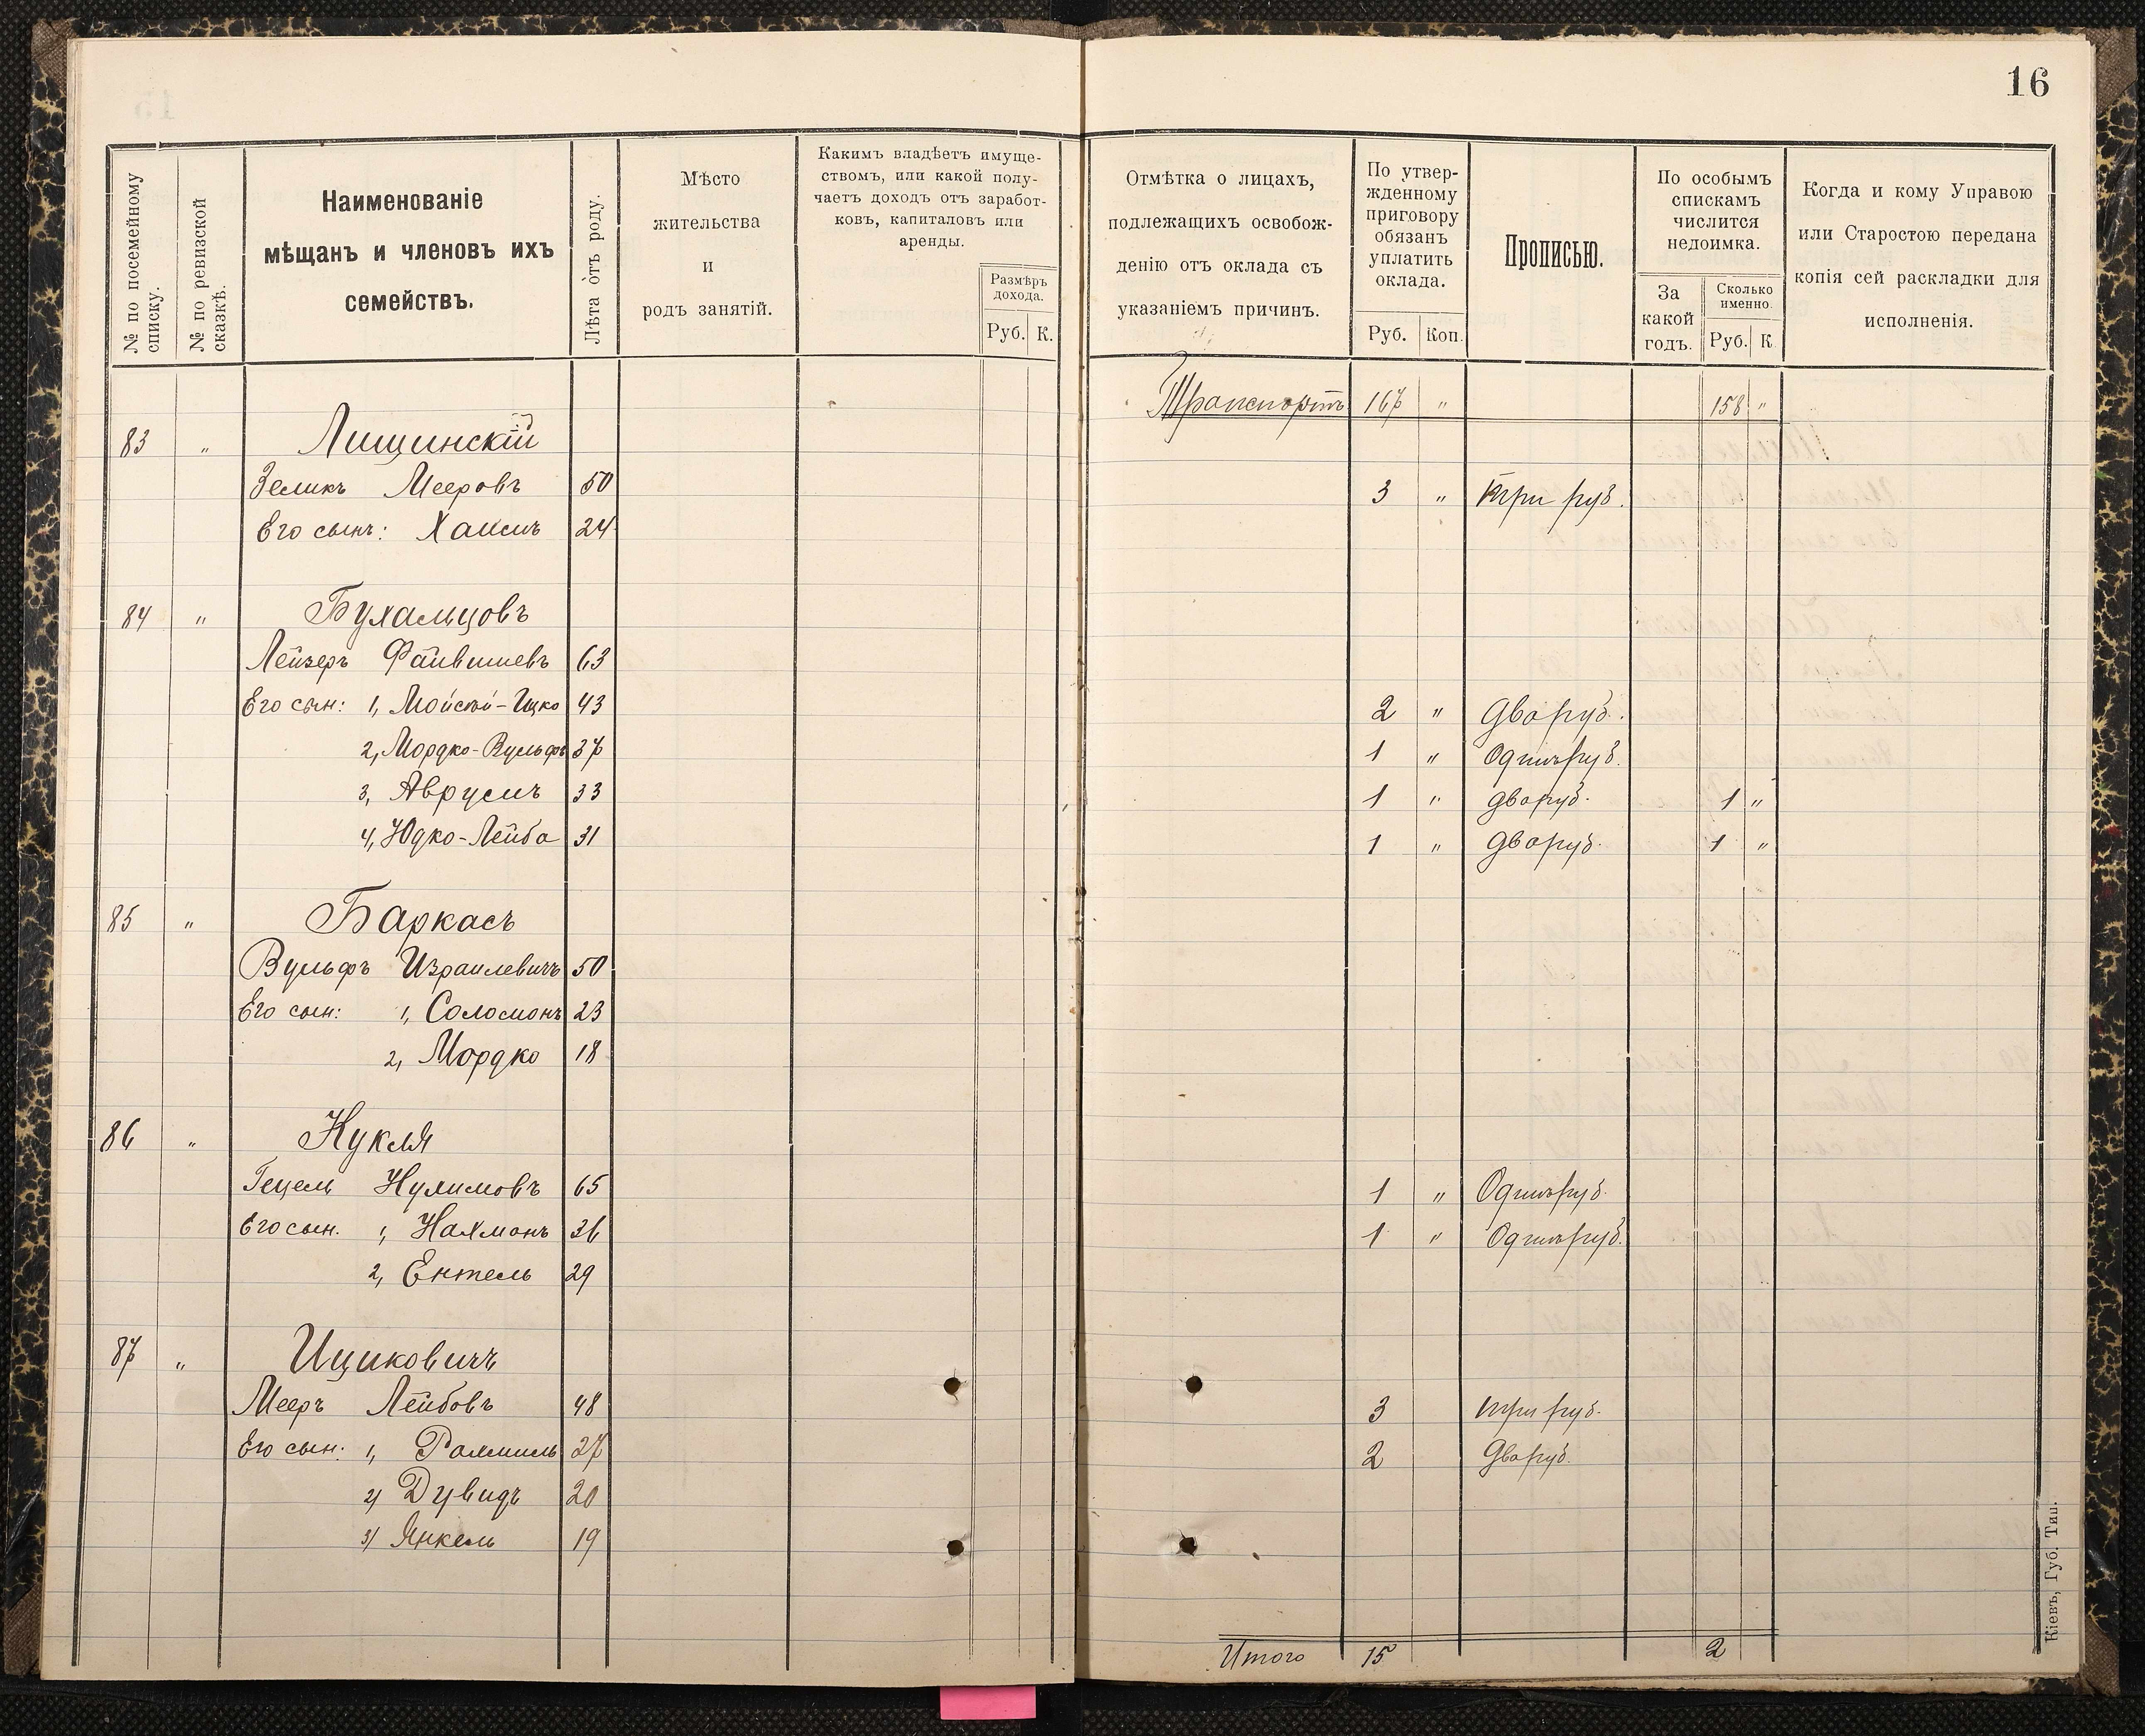 16
№ по посемейному списку.
№ по ревизской сказкѣ.
Наименованіе
мѣщанъ и членовъ ихъ
семействъ.
Лѣта отъ роду.
Мѣсто
жительства
и
родъ занятій.
Какимъ владѣетъ имуще-
ствомъ, или какой полу-
чаетъ доходъ отъ заработ-
ковъ, капиталовъ или
аренды.
Размѣръ
дохода.
Руб. К.
Отмѣтка о лицахъ,
подлежащихъ освобож-
денію отъ оклада съ
указаніемъ причинъ.
По утвер-
жденному
приговору
обязанъ
уплатить
оклада.
Руб. Коп.
Прописью.
По особымъ
спискамъ
числится
недоимка.
За
какой
годъ.
Сколько
именно.
Руб. К
Когда и кому Управою
или Старостою передана
копія сей раскладки для
исполненія.
Транспортъ 167 " 158 "
83 " Лищинскій
Зеликъ Мееровъ 50 3 " три руб.
Его сынъ: Хаимъ 24
84 " Бухамцовъ
Лейзеръ Файвишевъ 63
Его сын: 1, Мойсей-Ицко 43 2 " Два руб.
2, Мордко-Вульфъ 37 1 " Одинъ руб.
3, Аврумъ 33 1 " два руб. 1 "
4, Юдко-Лейба 31 1 " два руб. 1 "
85 " Баркасъ
Вульфъ Израилевичъ 50
Его сын: 1, Соломонъ 23
2, Мордко 18
86 " Кукля
Гецель Нухимовъ 65 1 " Одинъ руб.
Его сын. 1, Нахманъ 36 1 " Одинъ руб.
2, Ентель 29
87 " Ициковичъ
Мееръ Лейбовъ 48 3 три руб.
Его сын: 1, Рахмиль 27 2 Два руб.
2) Дувидъ 20
3) Янкель 19
Итого 15 2
Кіевъ, Губ. Тип.